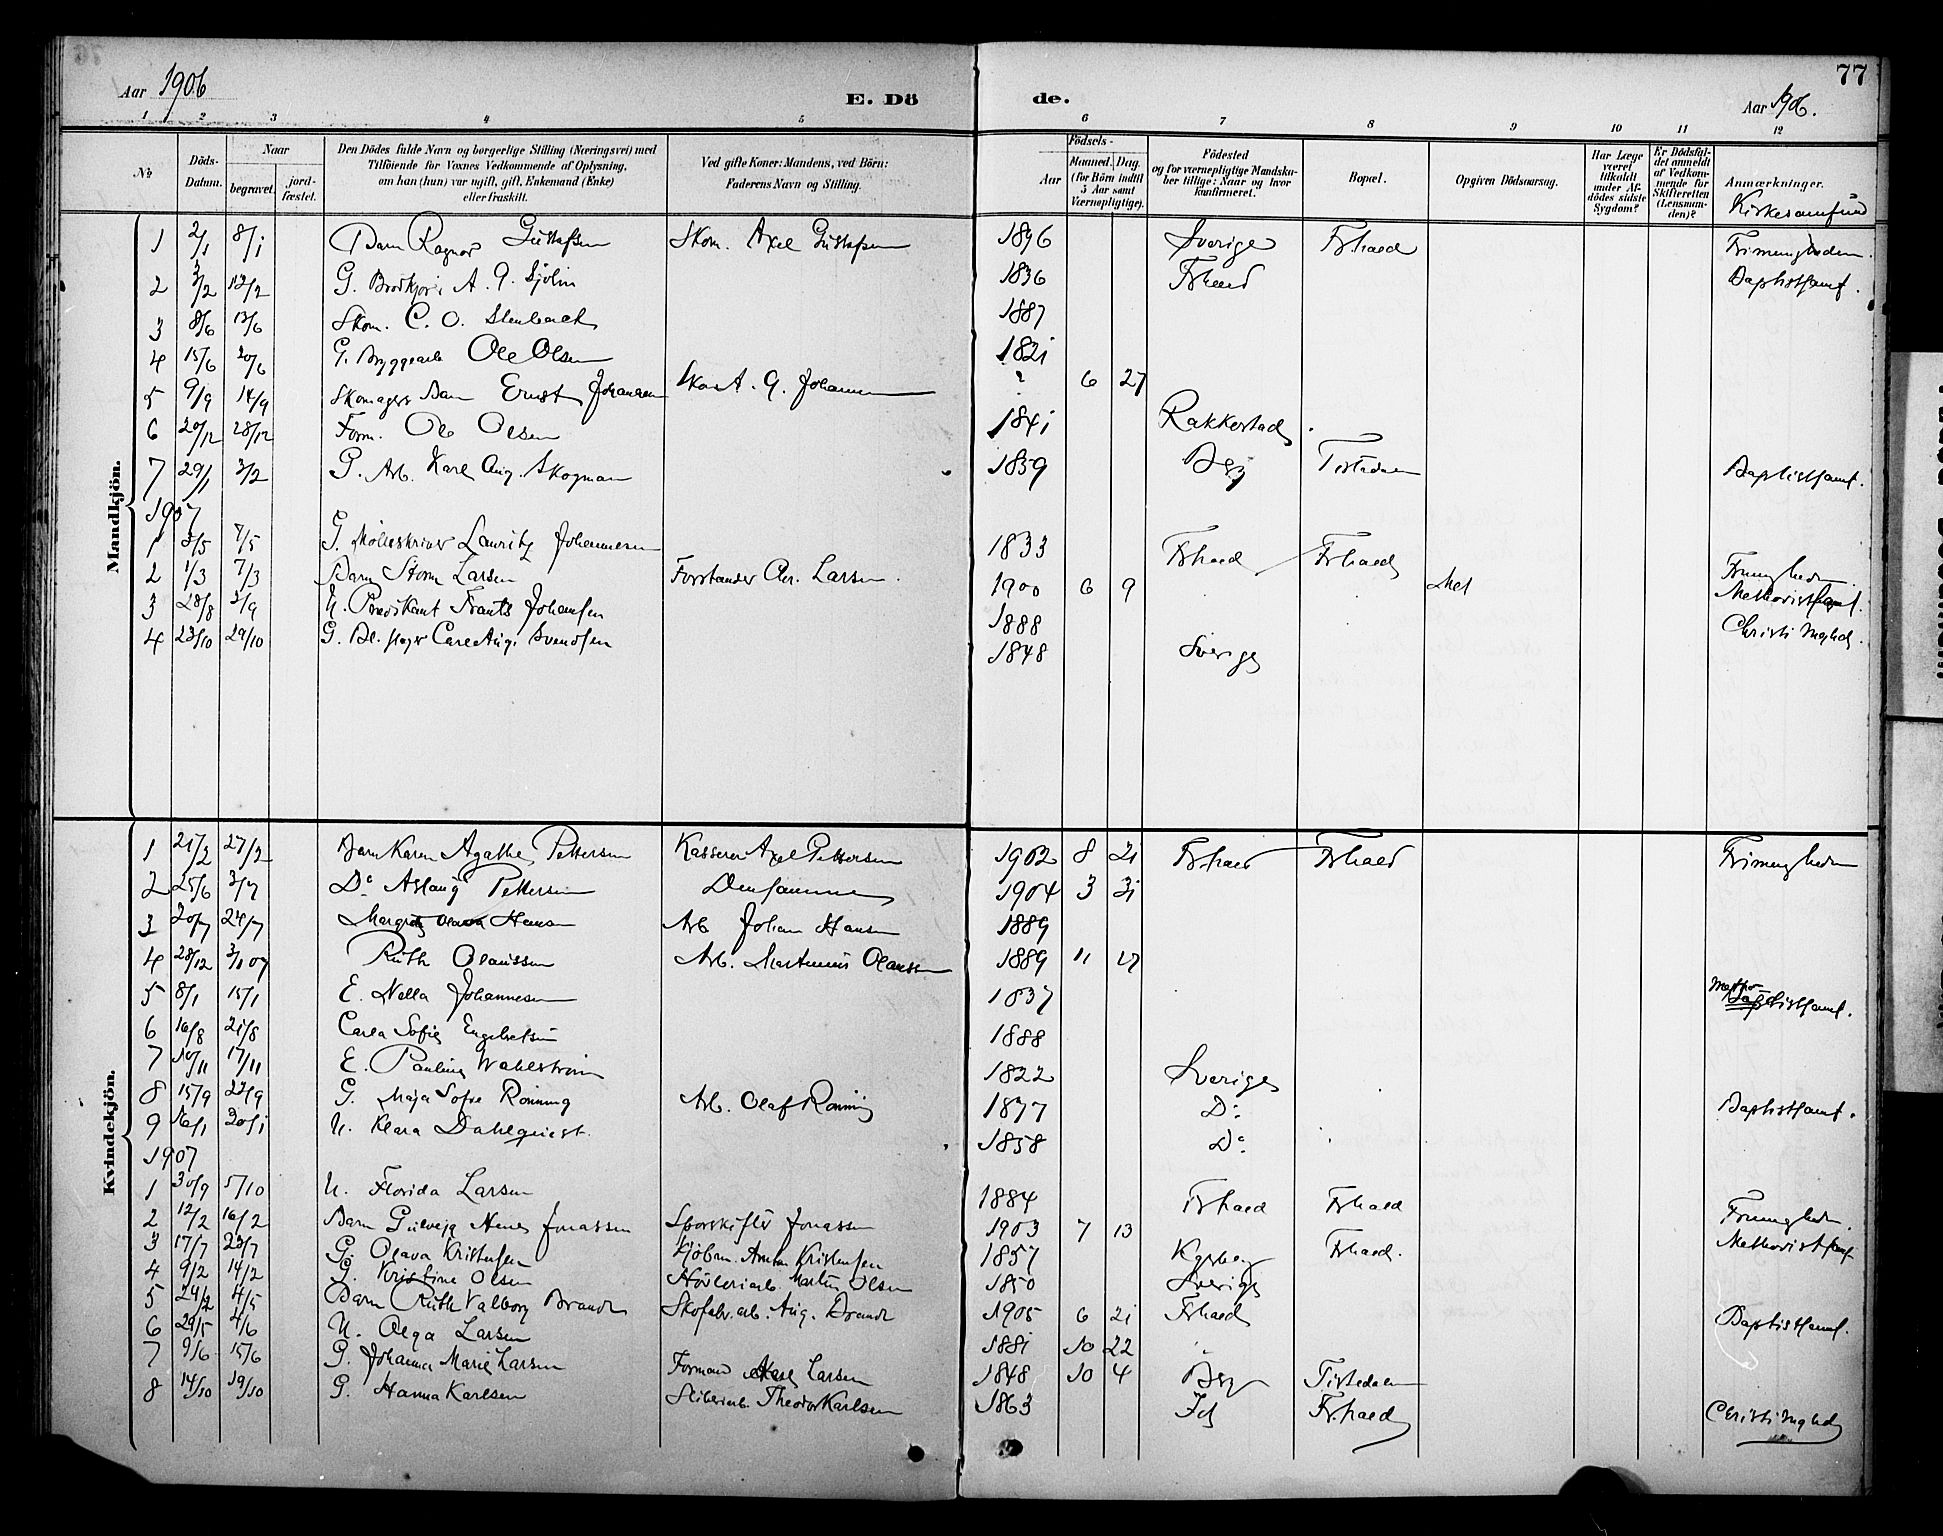 77
Aar 1906
E. Dö de.
Aar 1906.
1 2 3 4 5 6 7 8 9 10 11 12
No
Döds-Datum.
Naar
begravet.
jord-fæstet.
Den Dödes fulde Navn og borgerlige Stilling (Næringsvei) med
Tilföiende for Voxnes Vedkommende af Oplysning,
om han (hun) var ugift, gift, Enkemand (Enke)
eller fraskilt.
Ved gifte Koner: Mandens, ved Börn:
Faderens Navn og Stilling.
Födsels-
Aar
Maaned. Dag.
(for Börn indtil
5 Aar samt
Værnepligtige).
Födested
og for værnepligtige Mandskaber tillige: Naar og hvor
konfirmeret.
Bopæl.
Opgiven Dödsaarsag.
Har Læge
været
tilkaldt
under Afdödes sidste
Sygdom?
Er Dödsfaldet anmeldt
af Vedkommende for
Skifteretten
(Lensmanden)?
Anmærkninger.
Kirkesamfund
Mandkjön.
1 2/1 8/1 Barn Ragnar Gustafsen Skom. Axel Gustafsen 1896 Sverige Frhald Frimenigheden.
2 3/2 12/2 G. A. G. Sjölin 1836 Frhald Baptistsamf.
3 8/6 13/6 Skom. C. O. Stenbach 1887
4 15/6 20/6 G. Bryggearb Ole Olsen 1821
5 9/9 14/9 Skomagers Barn Ernst Johansen Skom A. G. Johansen ? 6 27
6 20/12 28/12 Form. Ole Olsen 1841 Rakkestad
7 29/1 3/2 G. Arb. Karl Aug. Skogman 1859 Berg Tistedalen Baptistsamf.
1907
1 3/5 7/5 G. Mölleskriver Lauritz Johannesen 1833 Frhald Frhald
2 1/3 7/3 Barn Storm Larsen Forstander Chr. Larsen. 1900 6 9 Frimenigheden.
3 28/8 3/9 U. Predikant Frants Johansen 1888 Methodistsamf.
4 23/10 29/10 G. Carl Aug. Svendsen 1848 Sverige Christi Mghd.
Kvindekjön.
1 21/2 27/2 Barn Karen Agathe Pettersen Kasserer Axel Pettersen 1902 8 21 Frhald Frhald Frimenigheden
2 25/6 3/7 Do Aslaug Pettersen Densamme 1904 3 31
3 20/7 24/7 Margreth Olava Hansen Arb Johan Hansen 1889
4 28/12 3/1 07 Ruth Olaussen Arb. Martinius Olausen 1889 11 17
5 8/1 15/1 E. Nella Johannesen 1837 Methodistsamf.
6 16/8 21/8 Carla Sofie Engebretsen 1888
7 10/11 17/11 E. Pauline Wahlström 1822 Sverige
8 15/9 22/9 G. Maja Sofie Rönning Arb. Olaf Rönning 1877 Do Baptistsamf.
9 16/1 20/1 U. Klara Dahlquist. 1858 Do
1907
1 30/9 5/10 U. Florida Larsen 1884 Frhald Frhald
2 12/2 16/2 Barn Jonassen Jonassen 1903 7 13 Frimenigheden.
3 17/7 23/7 G. Olava Kristensen Kjöbm. Anton Kristensen 1857 Frhald. Methodistsamf
4 9/2 14/2 G. Kristine Olsen Hövleriarb. Martin Olsen 1850 Sverige
5 24/2 4/5 Barn Ruth Valborg Brandt Skofabr.arb. Aug. Brandt 1905 6 21 Frhald
6 29/5 4/6 U. Olga Larsen 1881 10 22 Baptistsamf.
7 9/6 15/6 G. Johanne Marie Larsen Formand Larsen 1848 10 4 Berg Tistedalen
8 14/10 19/10 G. Hanna Karlsen Sliberiarb. Theodor Karlsen 1863 Id Fr.hald Christi Mghd